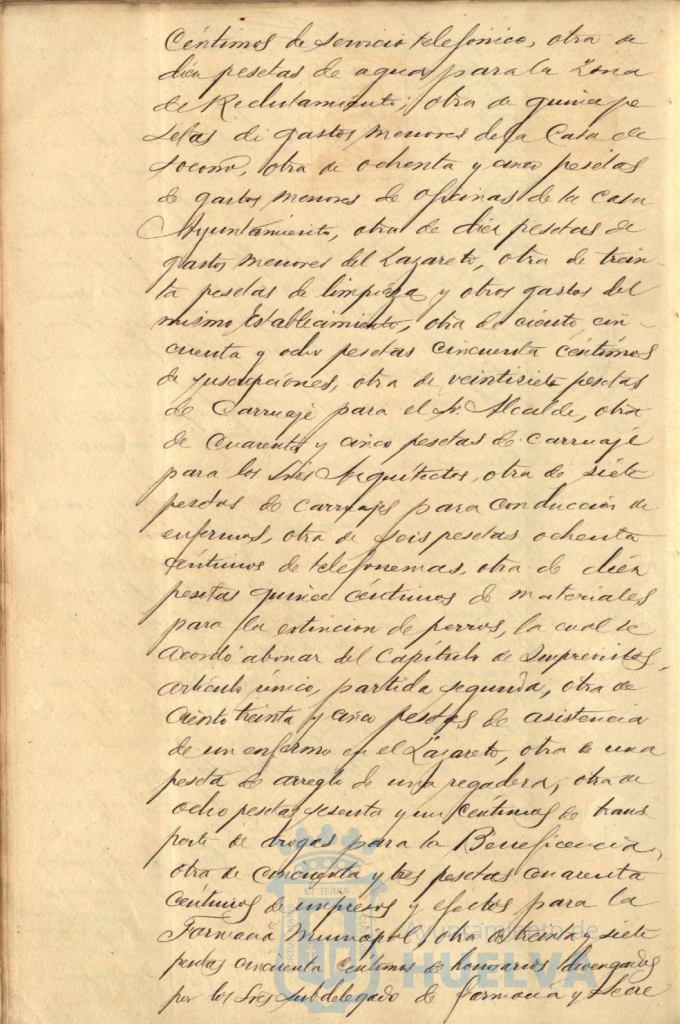 Céntimos de servicio telefónico, otra de
diéz pesetas de agua para la Zona
de Reclutamiento; otra de quince pe
setas de gastos menores de la Casa de
Socorro, otra de ochenta y cinco pesetas
de gastos menores de oficinas de la casa
Ayuntamiento, otra de diéz pesetas de
gastos menores del Lazareto, otra de trein-
ta pesetas de limpieza y otros gastos del
mismo Establecimiento, otra de ciento cin-
cuenta y ocho pesetas cincuenta céntimos
de suscripciones, otra de veintisiete pesetas
de Carruaje para el Sr. Alcalde, otra
de cuarenta y cinco pesetas de carruaje
para los Sres Arquitectos, otra de siete
pesetas de carruajes para conducción de
enfermos, otra de seis pesetas ochenta
céntimos de telefonemas, otra de diéz
pesetas quince céntimos de materiales
para la extincion de perros, la cual se
acordó abonar del Capítulo de Imprevistos,
artículo único, partida segunda, otra de
ciento treinta y cinco pesetas de asistencia
de un enfermo en el Lazareto, otra de una
peseta de arreglo de una regadera, otra de
ocho pesetas sesenta y un céntimos de trans
porte de drogas para la Beneficencia,
otra de cincuenta y tres pesetas cuarenta
céntimos de impresos y efectos para la
Farmacia Municipal, otra de treinta y siete
pesetas cincuenta céntimos de honorarios devengados
por los Sres Subdelegado de farmacia y Secre
Ayuntamiento de
HUELVA